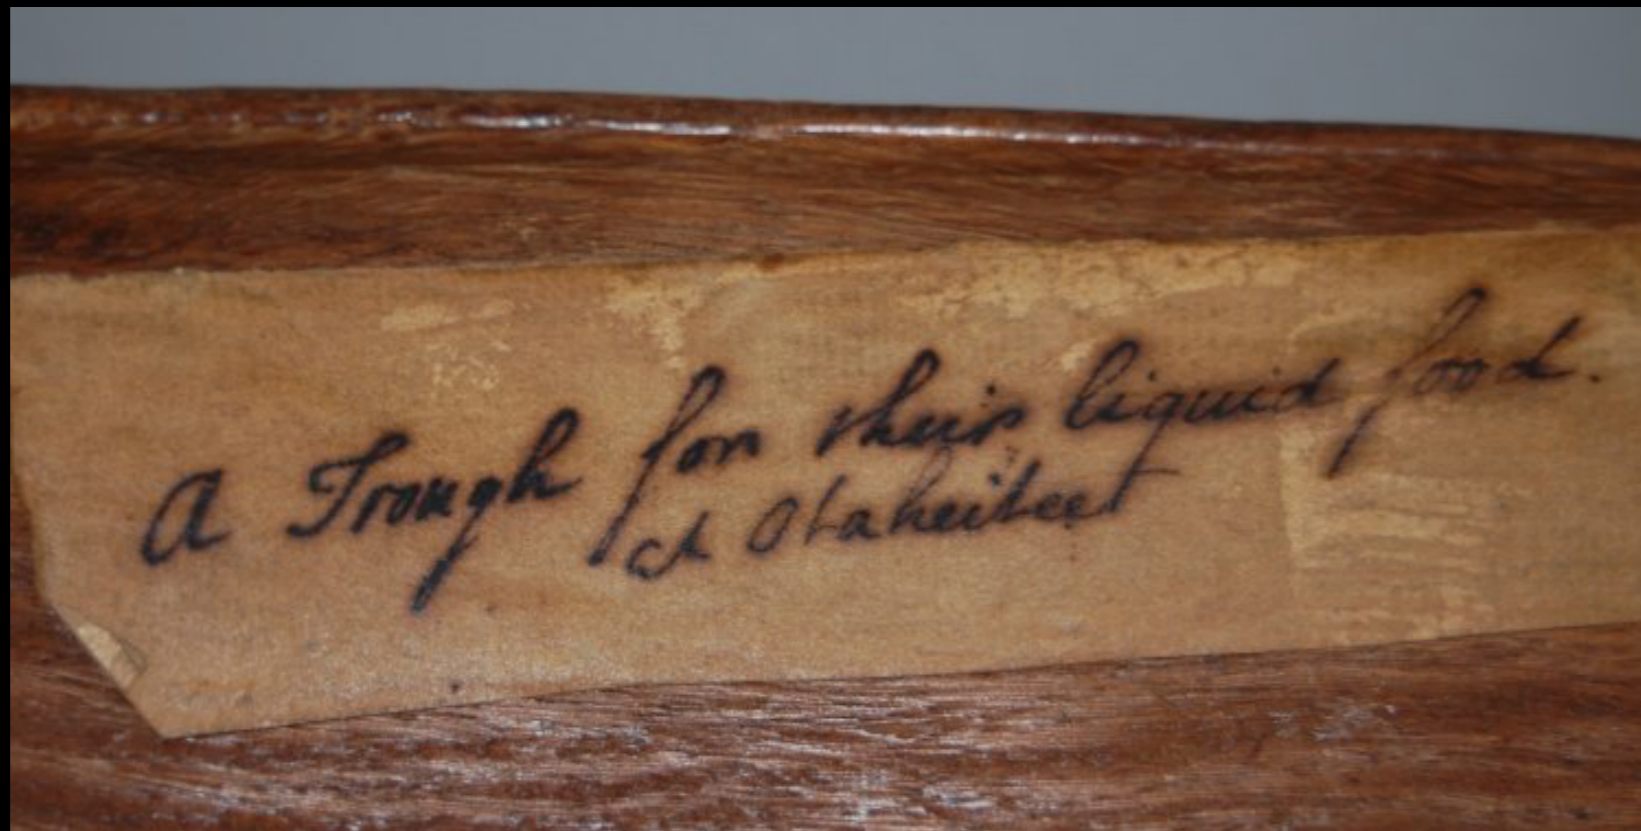 A Trough for their liquid food.
at Otaheitee